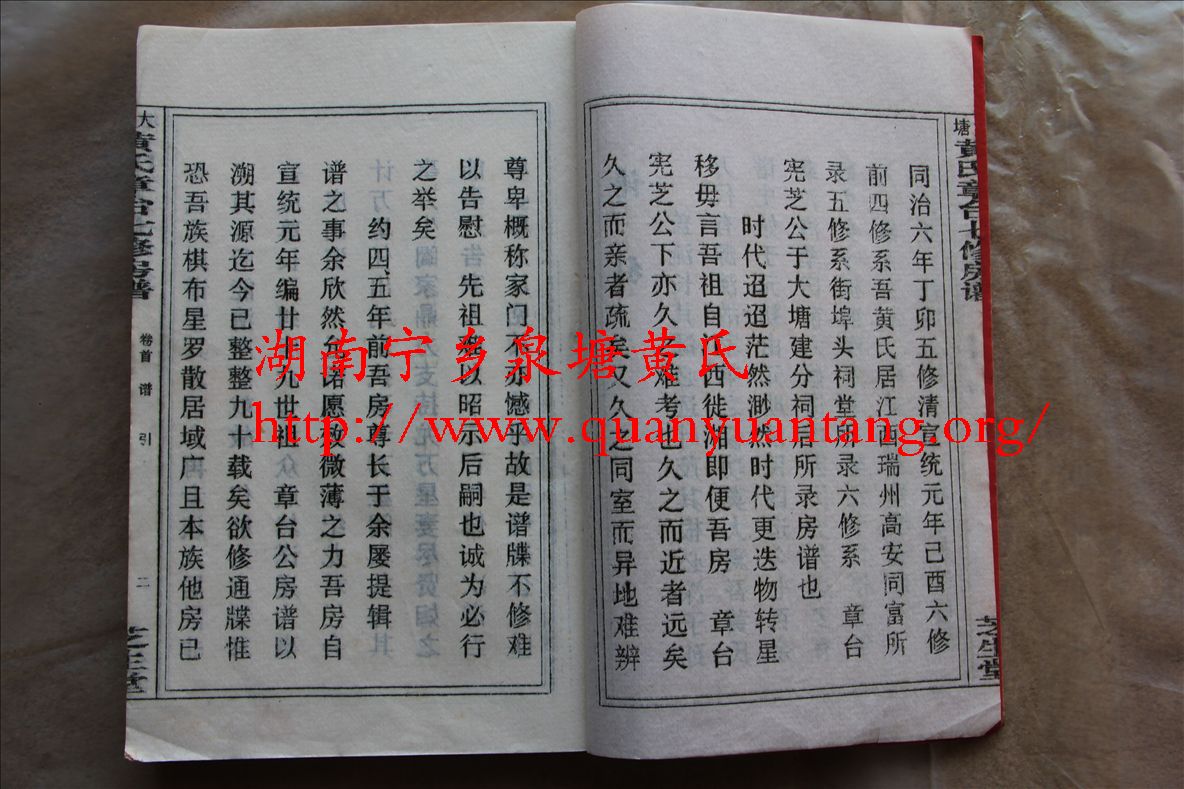 塘 黄氏章台七修房谱
芝生堂
同治六年丁卯五修清宣统元年己酉六修
前四修系吾黄氏居江西瑞州高安同富所
录五修系街埠头祠堂所录六修系　章台
宪芝公于大塘建分祠后所录房谱也
时代迢迢茫然渺然时代更迭物转星
移毋言吾祖自江西徙湘即便吾房　章台
宪芝公下亦久之难考也久之而近者远矣
久之而亲者疏矣又久之同室而异地难辨
尊卑概称家门不亦憾乎故是谱牒不修难
以告慰　先祖　以昭示后嗣也诚为必行
之举矣
约四、五年前吾房尊长于余屡提辑
谱之事余欣然允诺愿致微薄之力吾房自
宣统元年编廿　九世祖　章台公房谱以
溯其源迄今已整整九十载矣欲修通牒惟
恐吾族棋布星罗散居域府且本族他房已
大 黄氏章台七修房谱
卷首 谱引
二
芝生堂
湖南宁乡泉塘黄氏
http://www.quanyuantang.org/